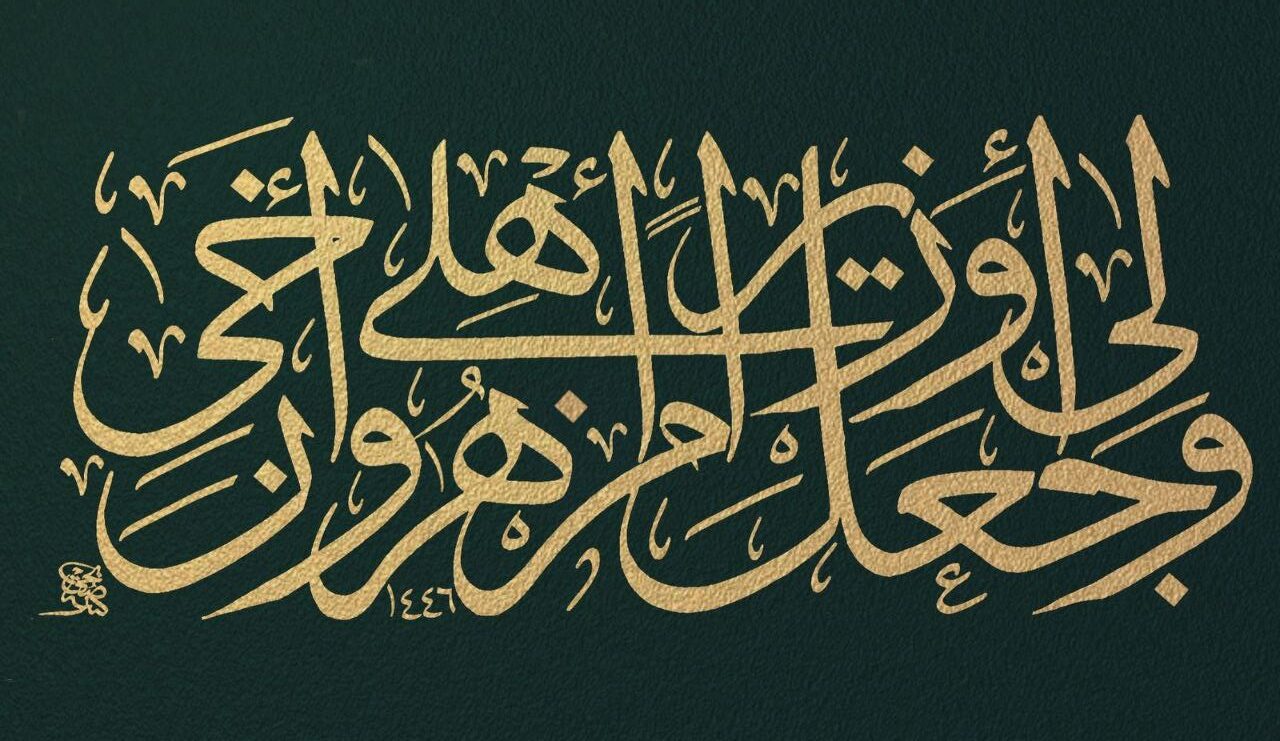 وَٱجْعَل لِى وَزِيرًا مِنْ أَهْلِى
هَٰرُونَ أَخِى
١٤٤٦